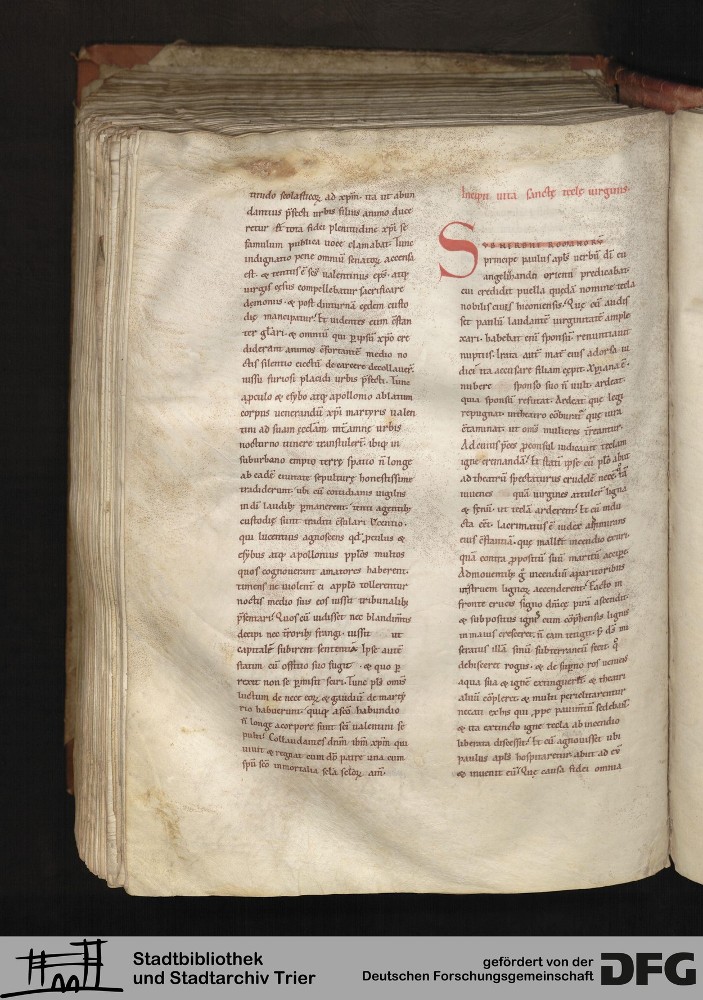 titudo scolasticoꝝ ad xp̄m. ita ut abun
dantius p̄fecti urbis filius animo duce
retur. & tota fidei plenitudine xp̄i se
famulum publica uoce clamabat. Tunc
indignatio pene omniū senatoꝝ accensa
est. & tentus ē sc̄s ualentinus ep̄s. atq;
virgis cęsus compellebatur sacrificare
dęmonis. & post diuturnā eędem custo
dię mancipatur. Et uidentes eum
ter gl̄ari. & omniū qui p ipsū xp̄o cre
diderant animos medio no
ctis silentio eiectū de carcere decollauer̄.
iussu furiosi placidi urbis p̄fecti. Tunc
ꝓculo & efybo atq; apollomo ablatum
corpus uenerandū xp̄i martyris ualen
tini ad suam ęccl̄am urbis
nocturno itinere transtuler̄t. ibiq; in
suburbano empto terrę spatio n̄ longe
ab eadē ciuitate sepulturę honestissime
tradiderunt. ubi cū cotidianis uigiliis
in dī laudib; pmanerent. tenti a gentilib;
custodię sunt traditi Lucentio.
qui lucentius agnoscens qd̄ ꝓculus &
efybus atq; apollonius multos
quos cognouerant amatores haberent.
timens ne uiolent ei applō tollerentur
noctis medio suis eos iussit tribunalib;
p̄sentari. Quos cū uidisset nec blandimtis
decipi nec t̄rorib; frangi. iussit ut
capitalē subirent sententiā. Ipse autē
statim cū officio suo fugit. & quo p
rexit non se pmisit sciri. Tunc pl̄s omīs
luctum de nece eoꝝ & gaudiū de marty
rio habuerunt. quiq; a sc̄o habundio
n̄ longe a corpore sunt sc̄i ualentini se
pulti. Collaudantes dn̄m ihm̄ xp̄m qui
uiuit & regnat cum dō patre una cum
spū sc̄o in mortalia sc̄la sc̄loꝝ. am̄.
Incipit uita sanctę teclę virginis.
SUB NERONE ROMANORŪ
principe paulus apl̄s uerbū dī eu
angelizandū orienti predicabat.
cui credidit puella quędā nomine tecla
nobilis ciuis hiconiensis. Quę cū audis
set paulū laudantē uirginitatē ample
xari. habebat enī sponsū. renuntiauit
nuptiis. Irata autē mat̄ eius
dici ita accusare filiam cępit. Xp̄iana ē.
nubere sponso suo n̄ uult. ardeat.
quia sponsū refutat. Ardeat quę legi
repugnat. in theatro cōburat̄ quę iura
cōtaminat. ut om̄s mulieres t̄reantur.
Ad cuius p̄ces ꝓconsul iudicauit teclam
igne cremandā. Et statī ipse cū plō abiit
ad theatrū spectaturus crudelē necē.
iuuenes quā uirgines attuler̄ ligna
& fęnū. ut tecla arderent. Et cū indu
cta eēt. lacrimatus ē iudex
eius cōstantiā. quę mallet incendio exuri.
quā contra ꝓpositū suū maritū accipe.
Admouentib; g̊ incendiū apparitoribus
ligneꝝ accenderent. Facto in
fronte crucis signo dn̄icę pirā ascendit.
& subpositus ignis cum cōp̄hensis lignis
in maius cresceret. n̄ eam tetigit.
seratus illā. sinū subterraneū fecit. q̊
debisceret rogus. & de supno ros ueniens
aqua sua & ignē extingueret. & theatri
alueū cōpleret. & multi periclitarentur
necari ex his qui ꝓpe pauimtū sedebāt.
& ita extincto igne tecla ab incendio
liberata discessit. Et cū agnouisset ubi
paulus apl̄s hospitaretur. abiit ad eū
& inuenit eū. Quę causa fidei omnia
Stadtbibliothek
und Stadtarchiv Trier
gefördert von der
Deutschen Forschungsgemeinschaft
DFG